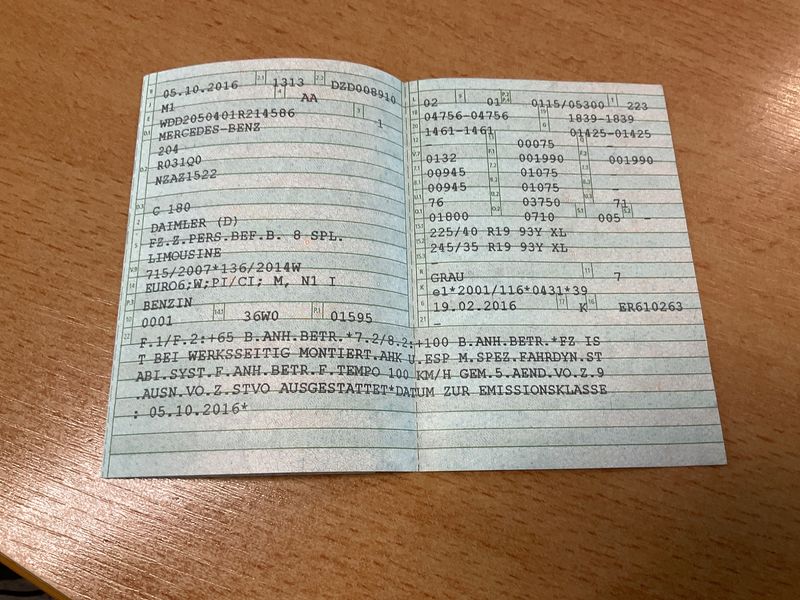 B 05.10.2016 2.1 1313 2.2 DZD008910
J M1 4 AA
E WDD2050401R214586 3 1
D.1 MERCEDES-BENZ
204
D.2 R031Q0
NZAZ1522
D.3 C 180
2 DAIMLER (D)
5 FZ.Z.PERS.BEF.B. 8 SPL.
LIMOUSINE
V.9 715/2007*136/2014W
14 EURO6;W;PI/CI; M, N1 I
P.3 BENZIN
10 0001 14.1 36W0 P.1 01595
L 02 9 01 P.2 P.4 0115/05300 T 223
18 04756-04756 19 1839-1839
20 1461-1461 G 01425-01425
12 - 13 00075 Q -
V.7 0132 F.1 001990 F.2 001990
7.1 00945 7.2 01075 7.3 -
8.1 00945 8.2 01075 8.3 -
U.1 76 U.2 03750 U.3 71
O.1 01800 O.2 0710 S.1 005 S.2 -
15.1 225/40 R19 93Y XL
15.2 245/35 R19 93Y XL
15.3 -
R GRAU 11 7
K e1*2001/116*0431*39
6 19.02.2016 17 K 16 ER610263
21 -
22 F.1/F.2:+65 B.ANH.BETR.*7.2/8.2:+100 B.ANH.BETR.*FZ IS
T BEI WERKSSEITIG MONTIERT.AHK U.ESP M.SPEZ.FAHRDYN.ST
ABI.SYST.F.ANH.BETR.F.TEMPO 100 KM/H GEM.5.AEND.VO.Z.9
.AUSN.VO.Z.STVO AUSGESTATTET*DATUM ZUR EMISSIONSKLASSE
: 05.10.2016*